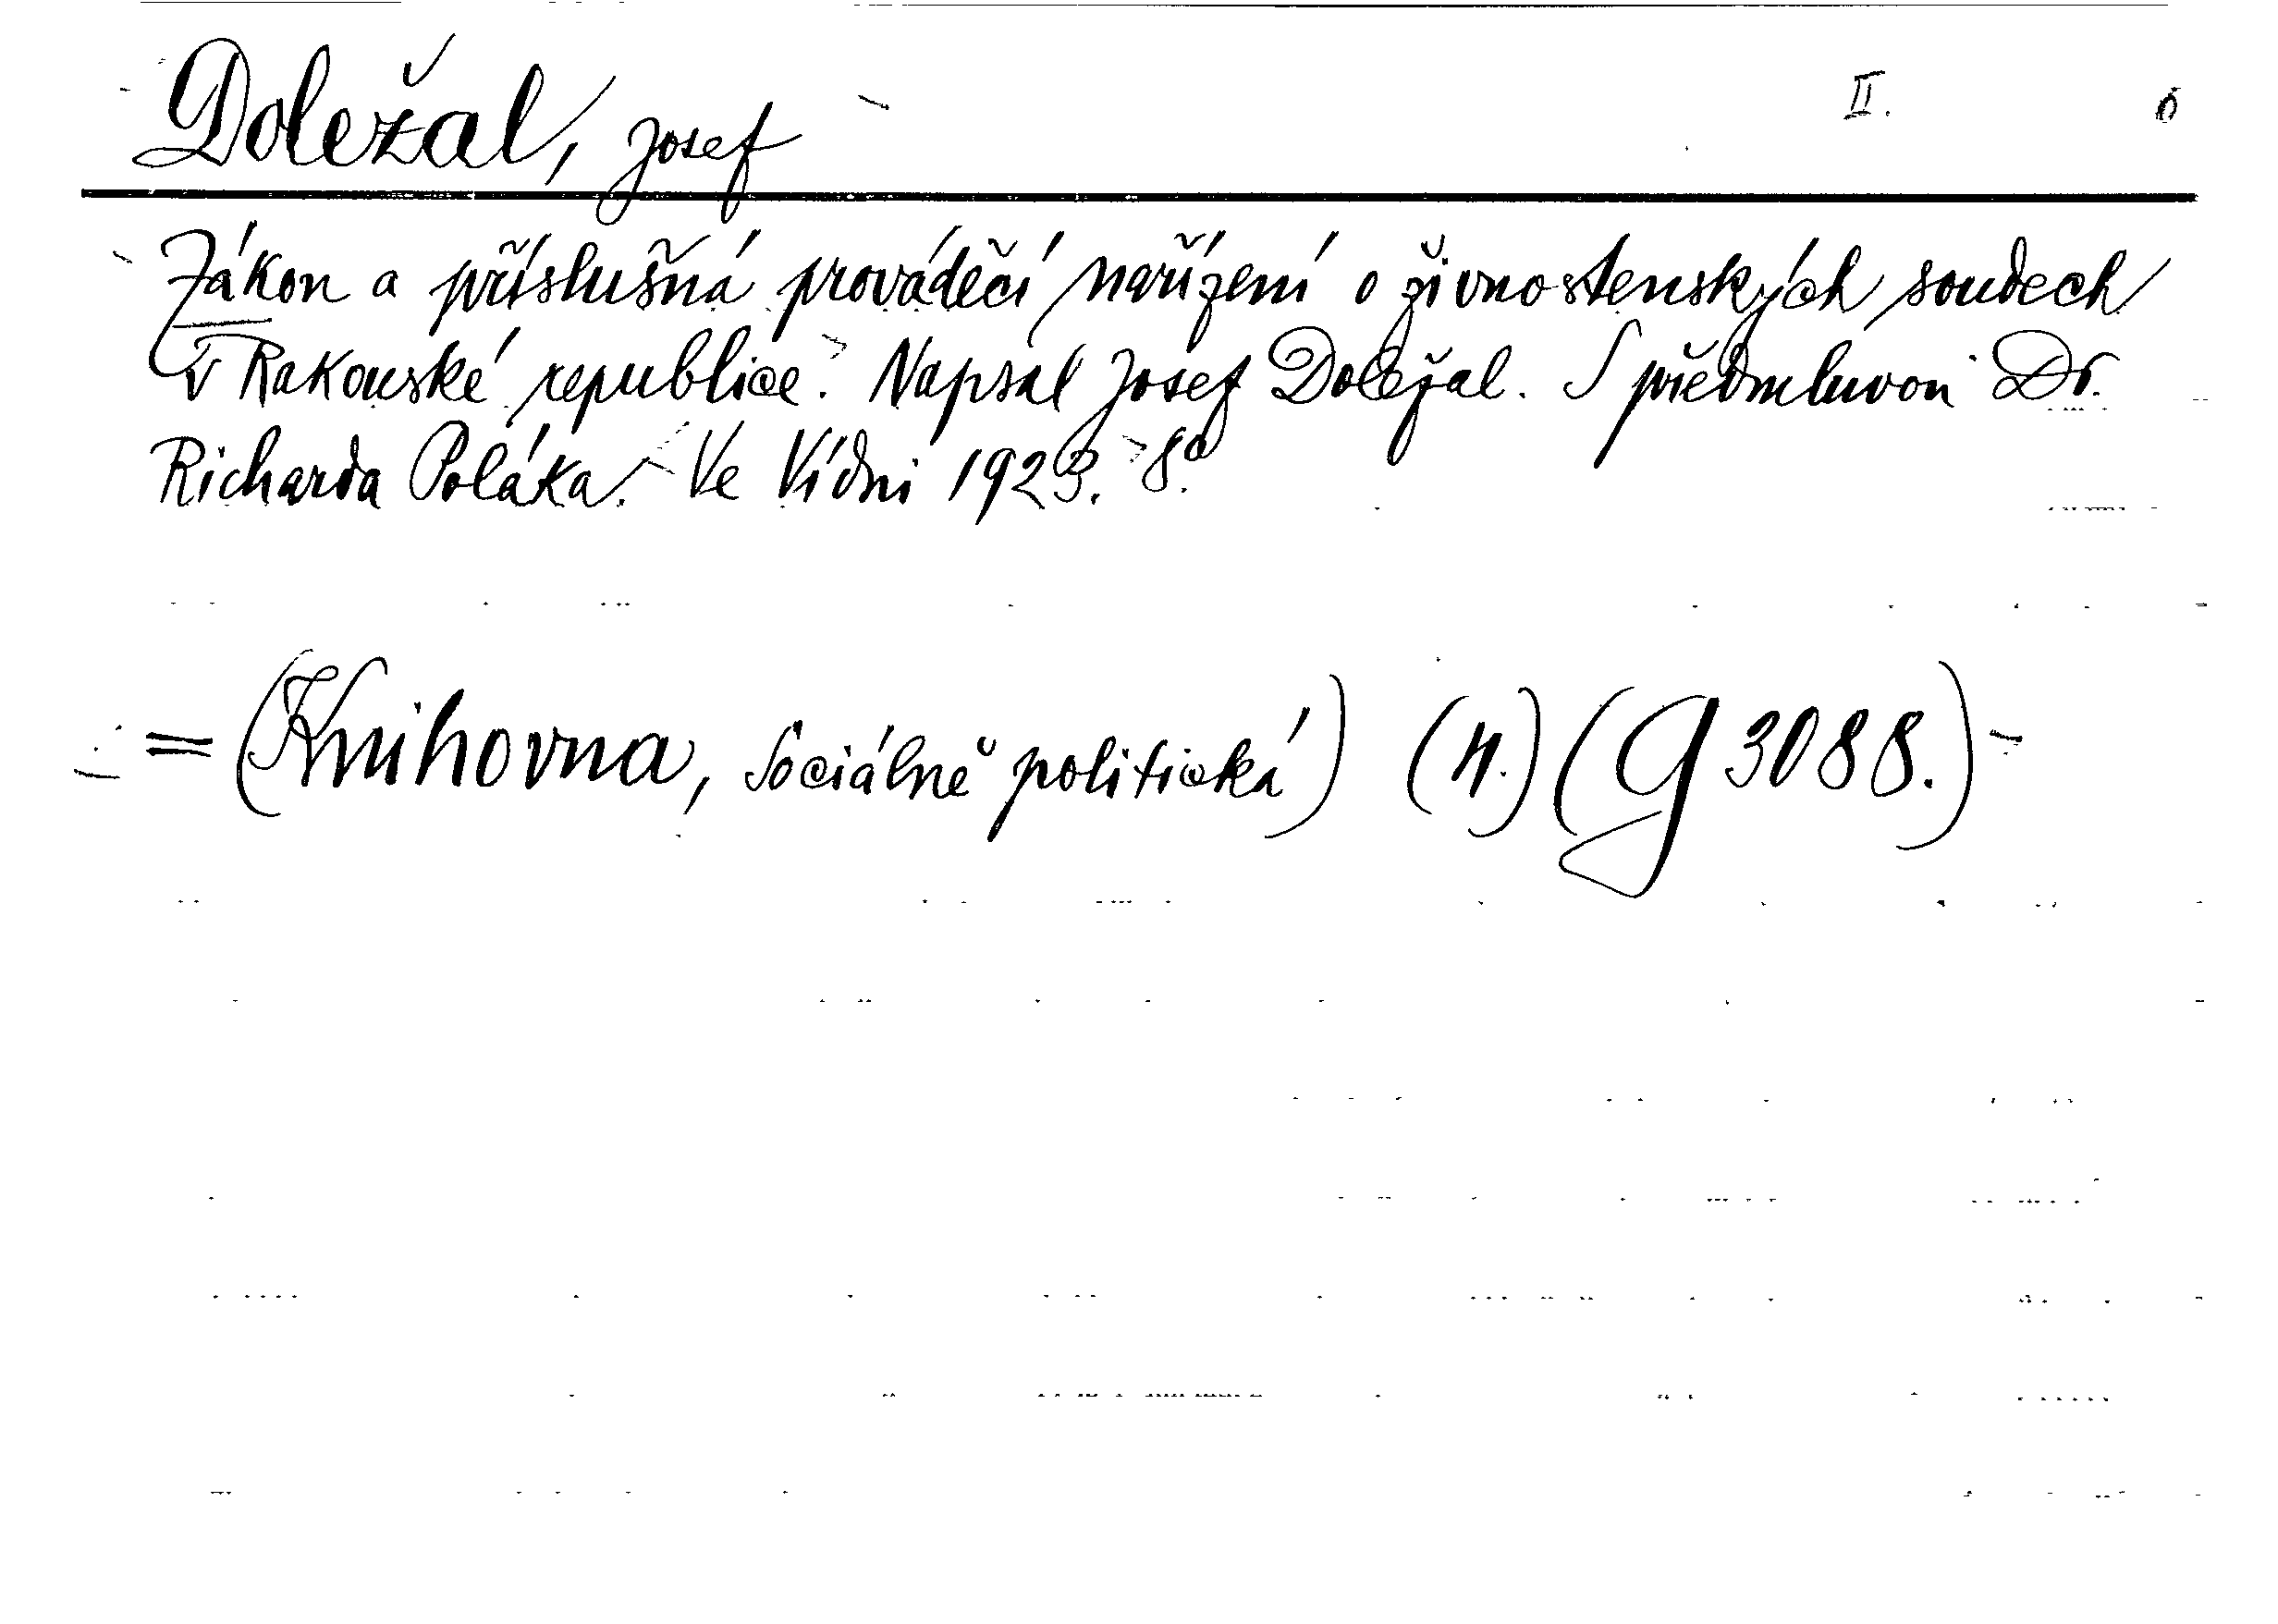 Doležal, Josef II. 6
Zákon a příslušná prováděčí nařízení o živnostenských soudech
v Rakouské republice. Napsal Josef Doležal. S předmluvou Dr.
Richarda Poláka. Ve Vídni 1923. 8°.
= (Knihovna, Sociálně politická) (4.) (G 3088.)